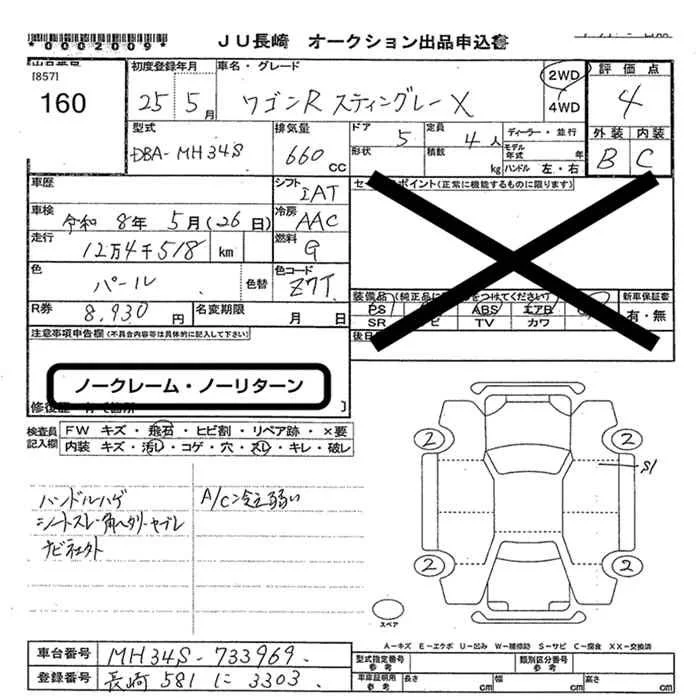 *0002009*
JU長崎 オークション出品申込書
[857]
160
初度登録年月
25 5月
車名・グレード
ワゴンR スティングレー X
2WD
4WD
評価点
4
外装 内装
B C
型式
DBA-MH34S
排気量
660 CC
ドア 5
形状
定員 4人
積数 kg
ディーラー・並行
モデル年式 年
ハンドル 左・右
車歴
シフト IAT
車検 令和 8年 5月(26日)
冷房 AAC
走行 12万4千518 km
燃料 G
色 パール
色替
色コード Z7T
R券 8,930円
名変期限 月 日
セールスポイント(正常に機能するものに限ります)
装備品(純正品に○をつけてください)
PS ABS エアB
SR ナビ TV カワ
新車保証書
有・無
注意事項申告欄(不具合内容等は具体的に記入して下さい)
ノークレーム・ノーリターン
検査員記入欄
FW キズ・飛石・ヒビ割・リペア跡・×要
内装 キズ・汚レ・コゲ・穴・スレ・キレ・破レ
ハンドルハゲ
シートスレ・角ヘタリ・ヤブレ
A/C冷え弱い
2
2
S1
2
2
スペア
A－キズ E－エクボ U－凹み W－補修跡 S－サビ C－腐食 XX－交換済
車台番号 MH34S-733969
登録番号 長崎 581 に 3303
型式指定番号 参考
類別区分番号 参考
車庫証明用 参考
長さ cm
幅 cm
高さ cm